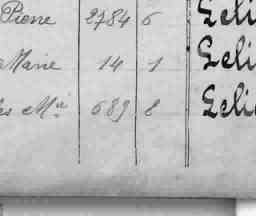 Pierre 2784 6 Geli
Marie 14 1 Geli
es Mie 689 8 Geli